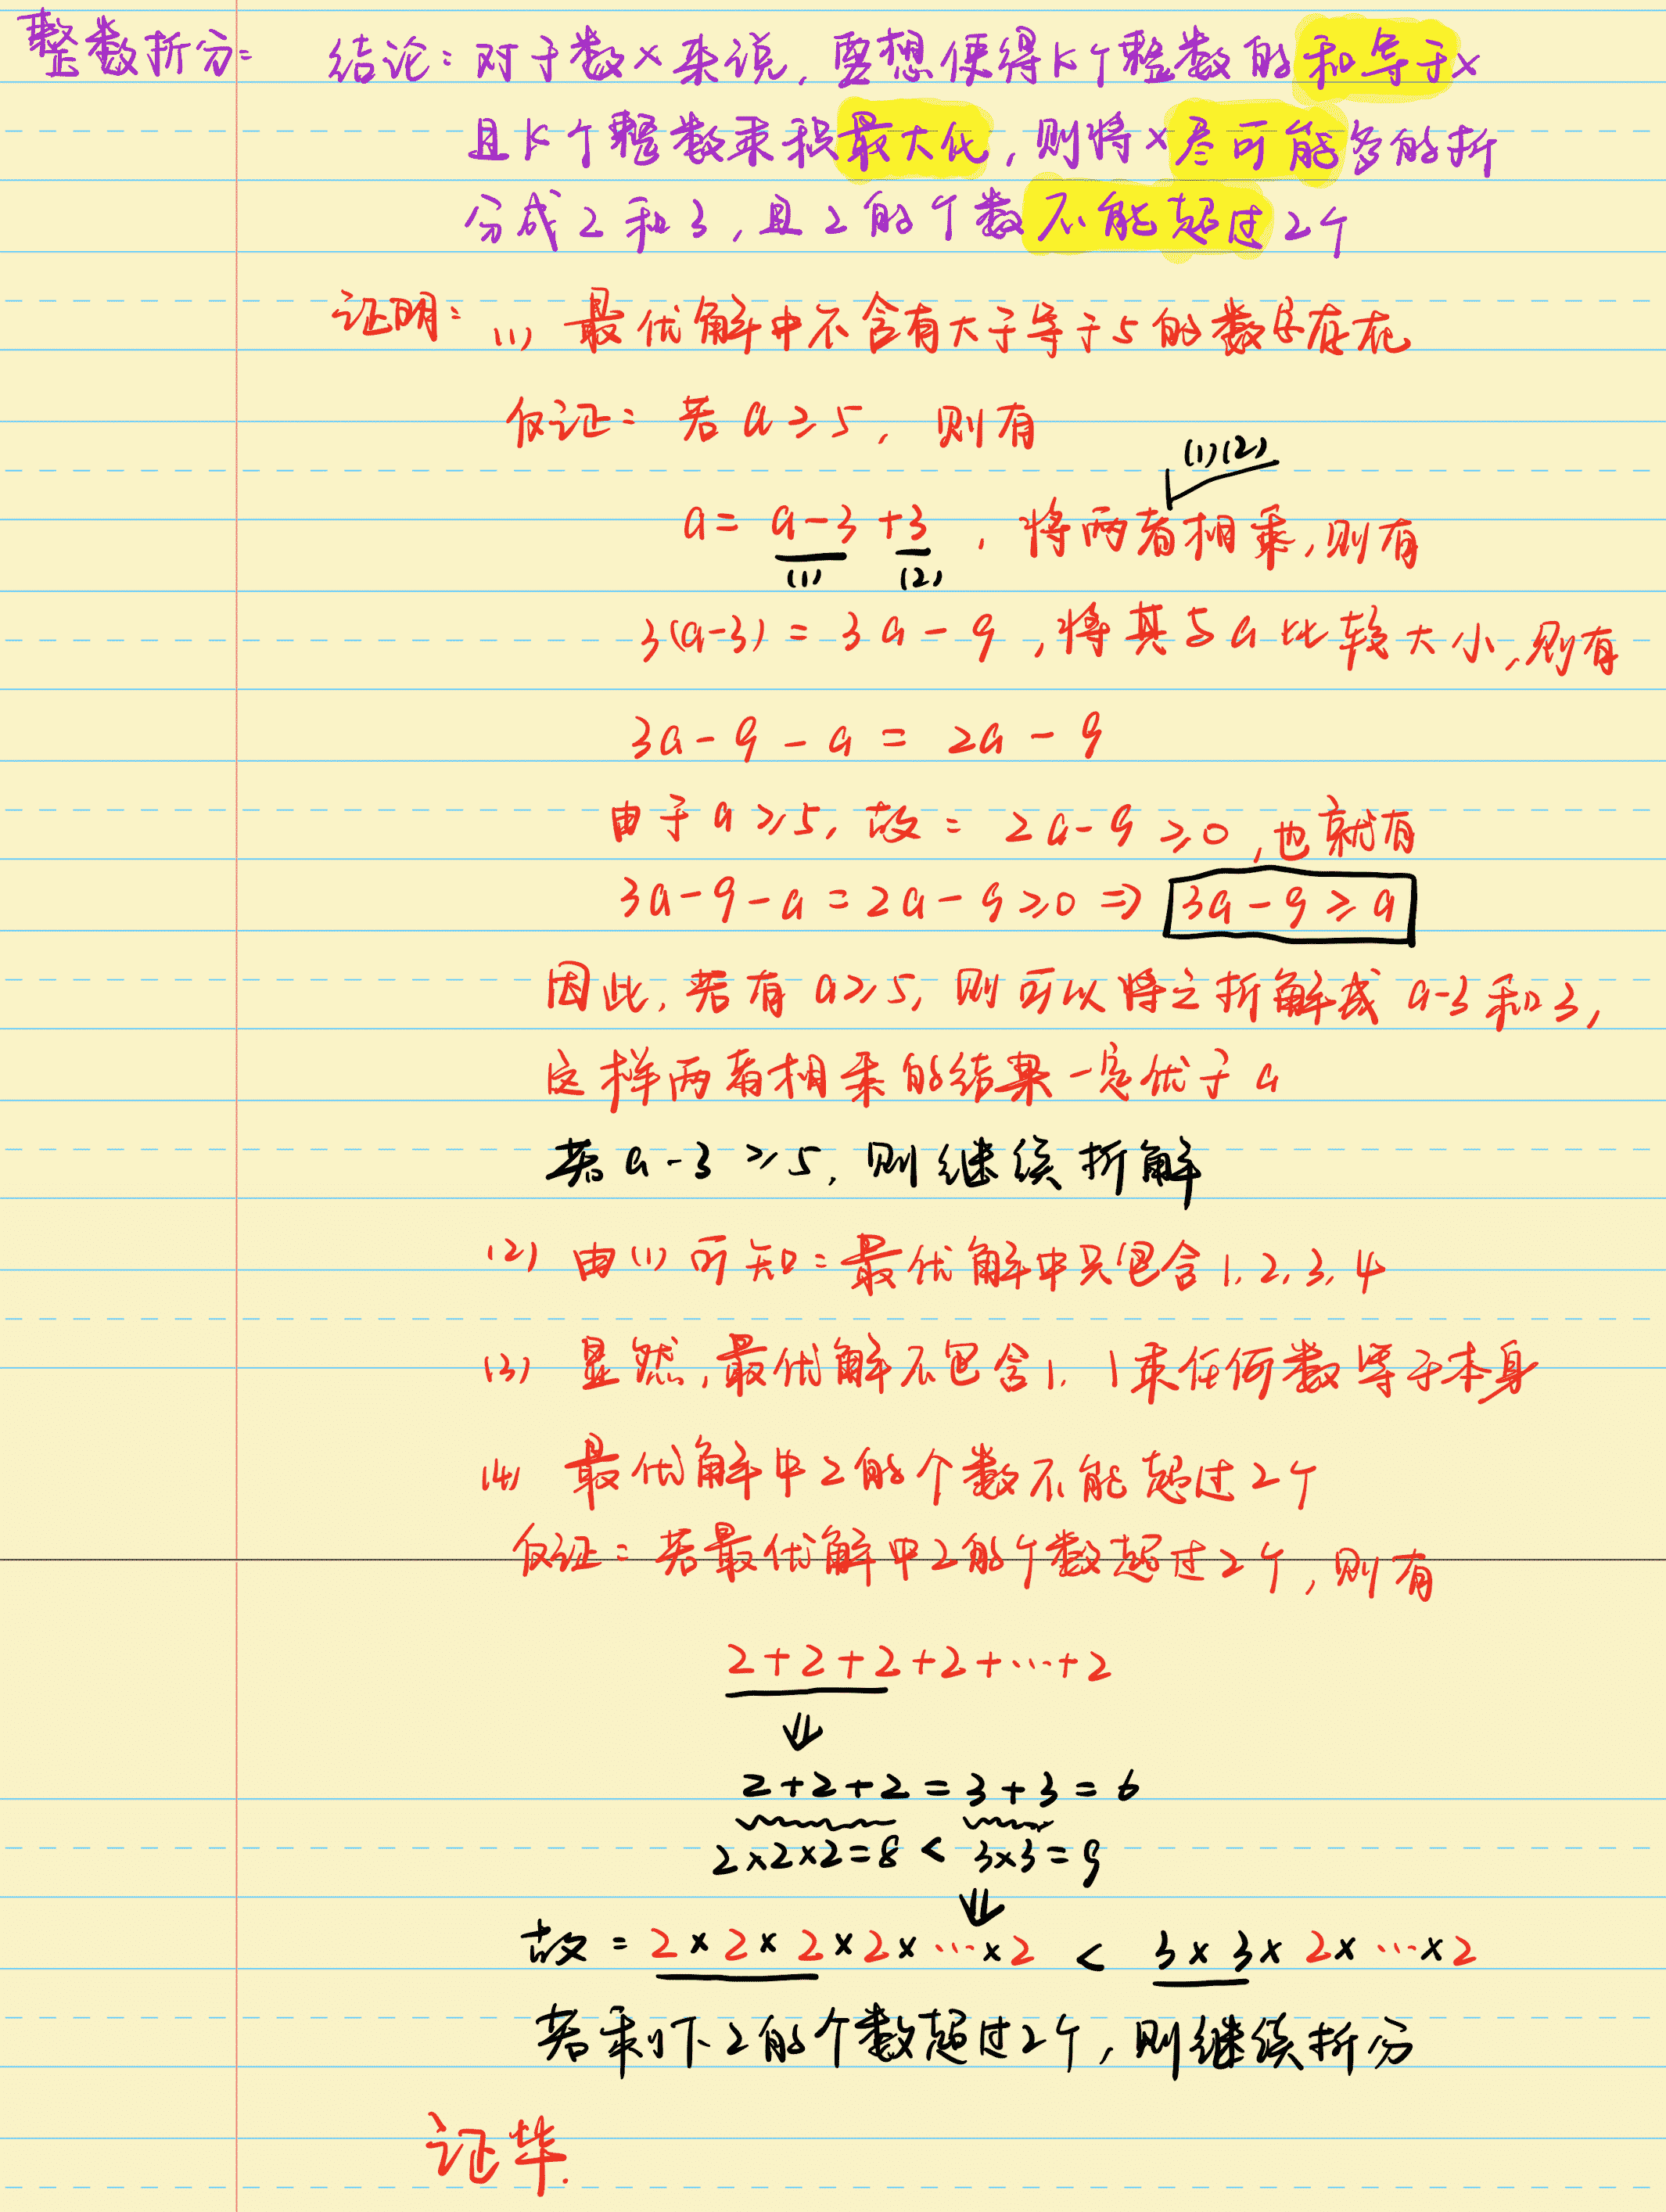 整数拆分：结论：对于数x来说，要想使得k个整数的和等于x
且k个整数乘积最大化，则将x尽可能多的拆
分成2和3，且2的个数不能超过2个
证明：(1) 最优解中不含有大于等于5的数字存在
反证：若a≥5，则有
(1)(2)
a = a-3 +3，将两者相乘，则有
(1) (2)
3(a-3) = 3a-9，将其与a比较大小，则有
3a-9-a = 2a-9
由于a≥5，故：2a-9≥0，也就有
3a-9-a=2a-9≥0 ⇒ 3a-9≥a
因此，若有a≥5，则可以将之拆解成a-3和3，
这样两者相乘的结果一定优于a
若a-3≥5，则继续拆解
(2) 由(1)可知：最优解中只包含1.2.3.4
(3) 显然，最优解不包含1，1乘任何数等于本身
(4) 最优解中2的个数不能超过2个
反证：若最优解中2的个数超过2个，则有
2+2+2+2+…+2
⇓
2+2+2=3+3=6
2×2×2=8 < 3×3=9
⇓
故：2×2×2×2×…×2 < 3×3×2×…×2
若乘下2的个数超过2个，则继续拆分
证毕.